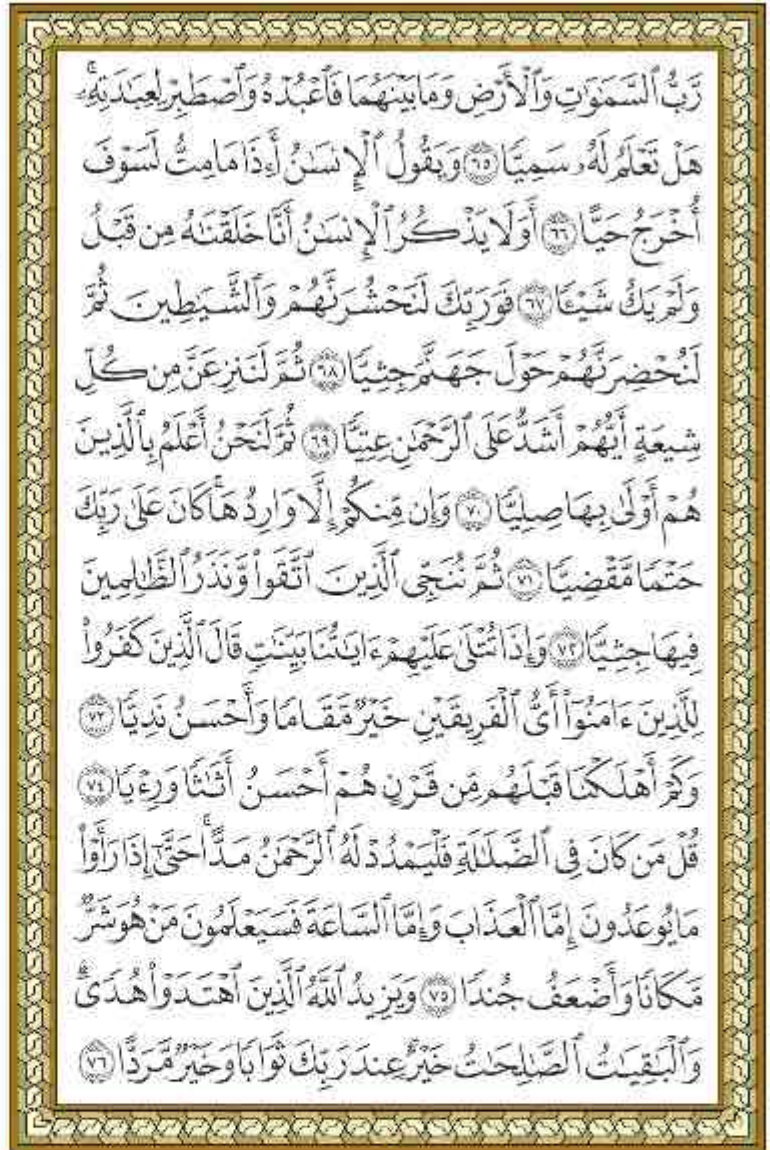 رَّبُّ ٱلسَّمَٰوَٰتِ وَٱلْأَرْضِ وَمَا بَيْنَهُمَا فَٱعْبُدْهُ وَٱصْطَبِرْ لِعِبَٰدَتِهِۦ ۚ
هَلْ تَعْلَمُ لَهُۥ سَمِيًّا ٦٥ وَيَقُولُ ٱلْإِنسَٰنُ أَءِذَا مَا مِتُّ لَسَوْفَ
أُخْرَجُ حَيًّا ٦٦ أَوَلَا يَذْكُرُ ٱلْإِنسَٰنُ أَنَّا خَلَقْنَٰهُ مِن قَبْلُ
وَلَمْ يَكُ شَيْـًٔا ٦٧ فَوَرَبِّكَ لَنَحْشُرَنَّهُمْ وَٱلشَّيَٰطِينَ ثُمَّ
لَنُحْضِرَنَّهُمْ حَوْلَ جَهَنَّمَ جِثِيًّا ٦٨ ثُمَّ لَنَنزِعَنَّ مِن كُلِّ
شِيعَةٍ أَيُّهُمْ أَشَدُّ عَلَى ٱلرَّحْمَٰنِ عِتِيًّا ٦٩ ثُمَّ لَنَحْنُ أَعْلَمُ بِٱلَّذِينَ
هُمْ أَوْلَىٰ بِهَا صِلِيًّا ٧٠ وَإِن مِّنكُمْ إِلَّا وَارِدُهَا ۚ كَانَ عَلَىٰ رَبِّكَ
حَتْمًا مَّقْضِيًّا ٧١ ثُمَّ نُنَجِّى ٱلَّذِينَ ٱتَّقَوا۟ وَّنَذَرُ ٱلظَّٰلِمِينَ
فِيهَا جِثِيًّا ٧٢ وَإِذَا تُتْلَىٰ عَلَيْهِمْ ءَايَٰتُنَا بَيِّنَٰتٍ قَالَ ٱلَّذِينَ كَفَرُوا۟
لِلَّذِينَ ءَامَنُوٓا۟ أَىُّ ٱلْفَرِيقَيْنِ خَيْرٌ مَّقَامًا وَأَحْسَنُ نَدِيًّا ٧٣
وَكَمْ أَهْلَكْنَا قَبْلَهُم مِّن قَرْنٍ هُمْ أَحْسَنُ أَثَٰثًا وَرِءْيًا ٧٤
قُلْ مَن كَانَ فِى ٱلضَّلَٰلَةِ فَلْيَمْدُدْ لَهُ ٱلرَّحْمَٰنُ مَدًّا ۚ حَتَّىٰٓ إِذَا رَأَوْا۟
مَا يُوعَدُونَ إِمَّا ٱلْعَذَابَ وَإِمَّا ٱلسَّاعَةَ فَسَيَعْلَمُونَ مَنْ هُوَ شَرٌّ
مَّكَانًا وَأَضْعَفُ جُندًا ٧٥ وَيَزِيدُ ٱللَّهُ ٱلَّذِينَ ٱهْتَدَوْا۟ هُدًى ۗ
وَٱلْبَٰقِيَٰتُ ٱلصَّٰلِحَٰتُ خَيْرٌ عِندَ رَبِّكَ ثَوَابًا وَخَيْرٌ مَّرَدًّا ٧٦